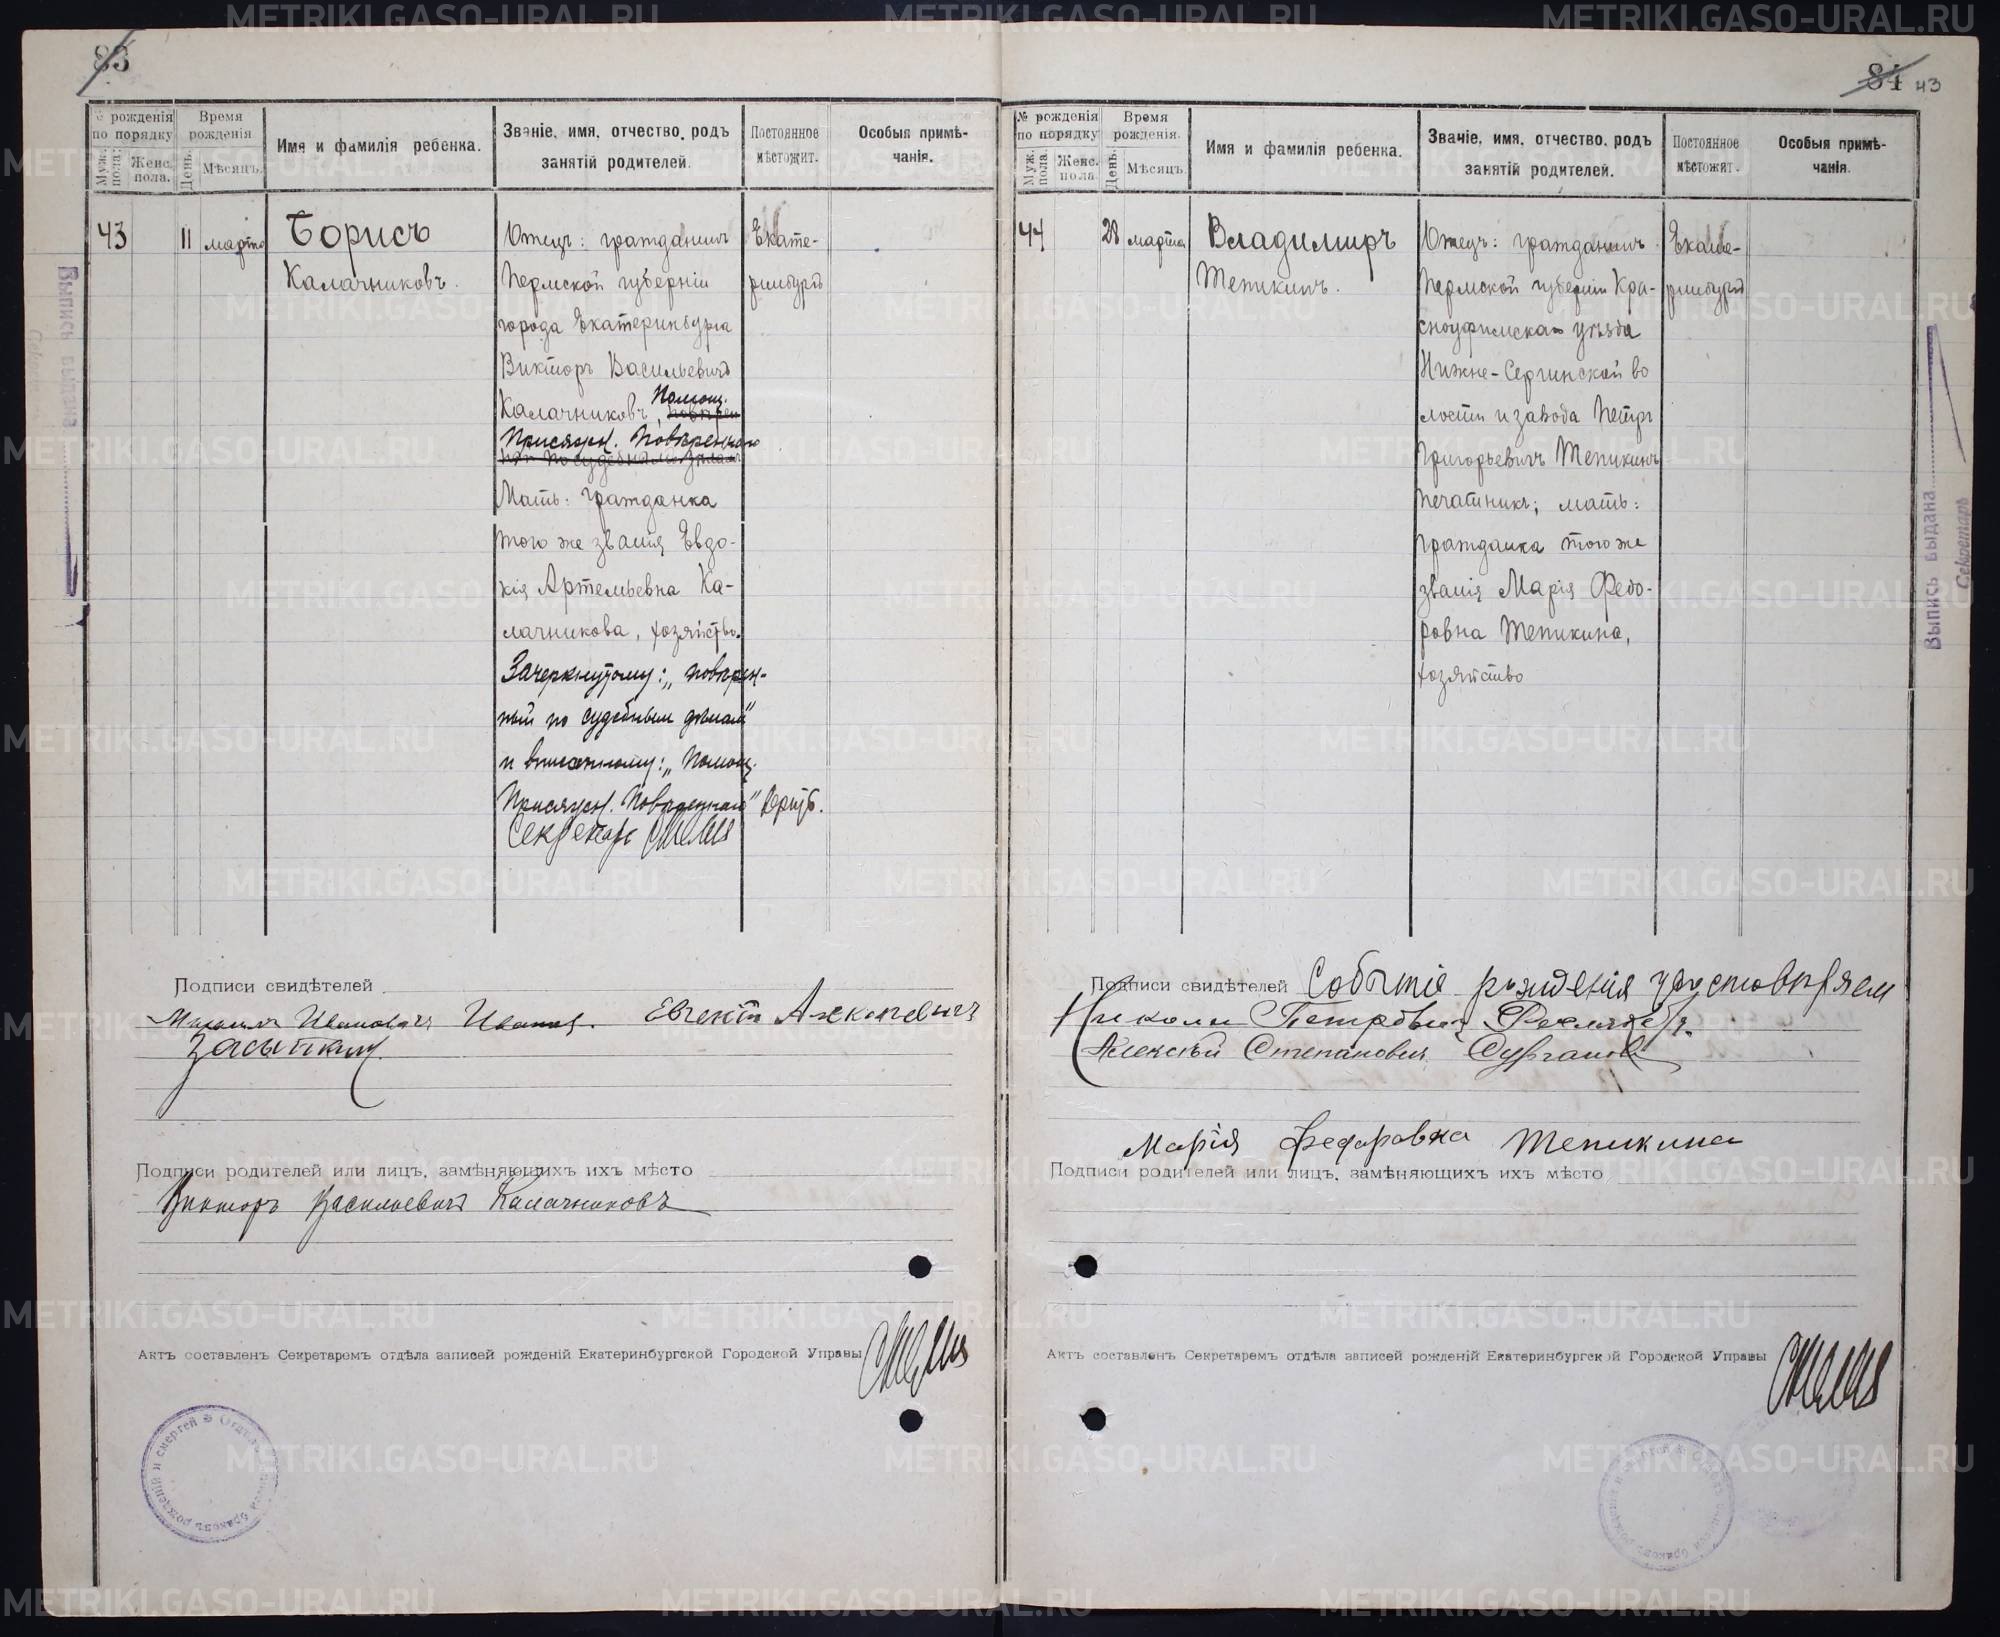 83
№ рожденія по порядку
Муж. пола.
Женс. пола.
Время рожденія
День.
Мѣсяцъ.
Имя и фамилія ребенка.
Званіе, имя, отчество, родъ
занятій родителей.
Постоянное
мѣстожит.
Особыя примѣ-
чанія.
43 11 марта
Борисъ
Калачниковъ.
Отецъ: гражданинъ
Пермской губерніи
города Екатеринбурга
Викторъ Васильевичъ
Калачниковъ, Помощ.
Присяжн. Повѣреннаго
Мать: гражданка
того же званія Евдо-
кія Артемьевна Ка-
лачникова, хозяйство.
Зачеркнутому: „повѣрен-
ный по судебнымъ дѣламъ"
и вписанному: „Помощ.
Присяжн. Повѣреннаго" вѣрить.
Секретарь
Екате-
ринбургъ
Подписи свидѣтелей
Михаилъ Ивановичъ Иванов. Евгеній Алексѣевичъ
Засыпкинъ
Подписи родителей или лицъ, замѣняющихъ ихъ мѣсто
Викторъ Васильевичъ Калачниковъ
Актъ составленъ Секретаремъ отдѣла записей рожденій Екатеринбургской Городской Управы
Выпись выдана
84 43
№ рожденія по порядку
Муж. пола.
Женс. пола
Время рожденія.
День.
Мѣсяцъ.
Имя и фамилія ребенка.
Званіе, имя, отчество, родъ
занятій родителей.
Постоянное
мѣстожит.
Особыя примѣ-
чанія.
44 28 марта
Владимиръ
Тепикинъ.
Отецъ: гражданинъ
Пермской губерніи Кра-
сноуфимскаго уѣзда
Нижне-Сергинской во
лости и завода Петръ
Григорьевичъ Тепикинъ
печатникъ; мать:
гражданка того же
званія Марія Федо-
ровна Тепикина,
хозяйство
Екате-
ринбургъ
Подписи свидѣтелей Событіе рожденія удостовѣряем
Николай Петровичъ
Алексѣй Степановичъ
Марія Федаровна Тепикина
Подписи родителей или лицъ, замѣняющихъ ихъ мѣсто
Актъ составленъ Секретаремъ отдѣла записей рожденій Екатеринбургской Городской Управы
Выпись выдана
Секретарь
METRIKI.GASO-URAL.RU